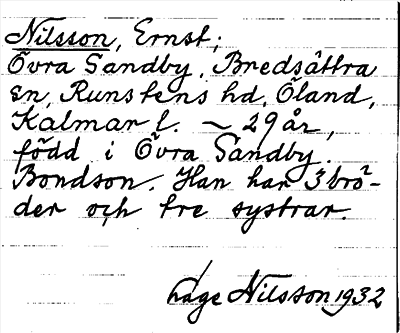 Nilsson, Ernst;
Övra Sandby, Bredsättra
sn, Runstens hd, Öland,
Kalmar l. ~ 29 år,
född i Övra Sandby.
Bondson. Han har 3 brö-
der och tre systrar.
Nilsson 1932